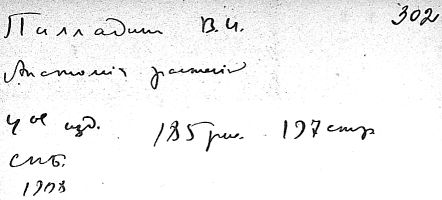 302
Палладин В. И.
Анатомія растеній
4ое изд. 185 рис. 197 стр
СПБ.
1908